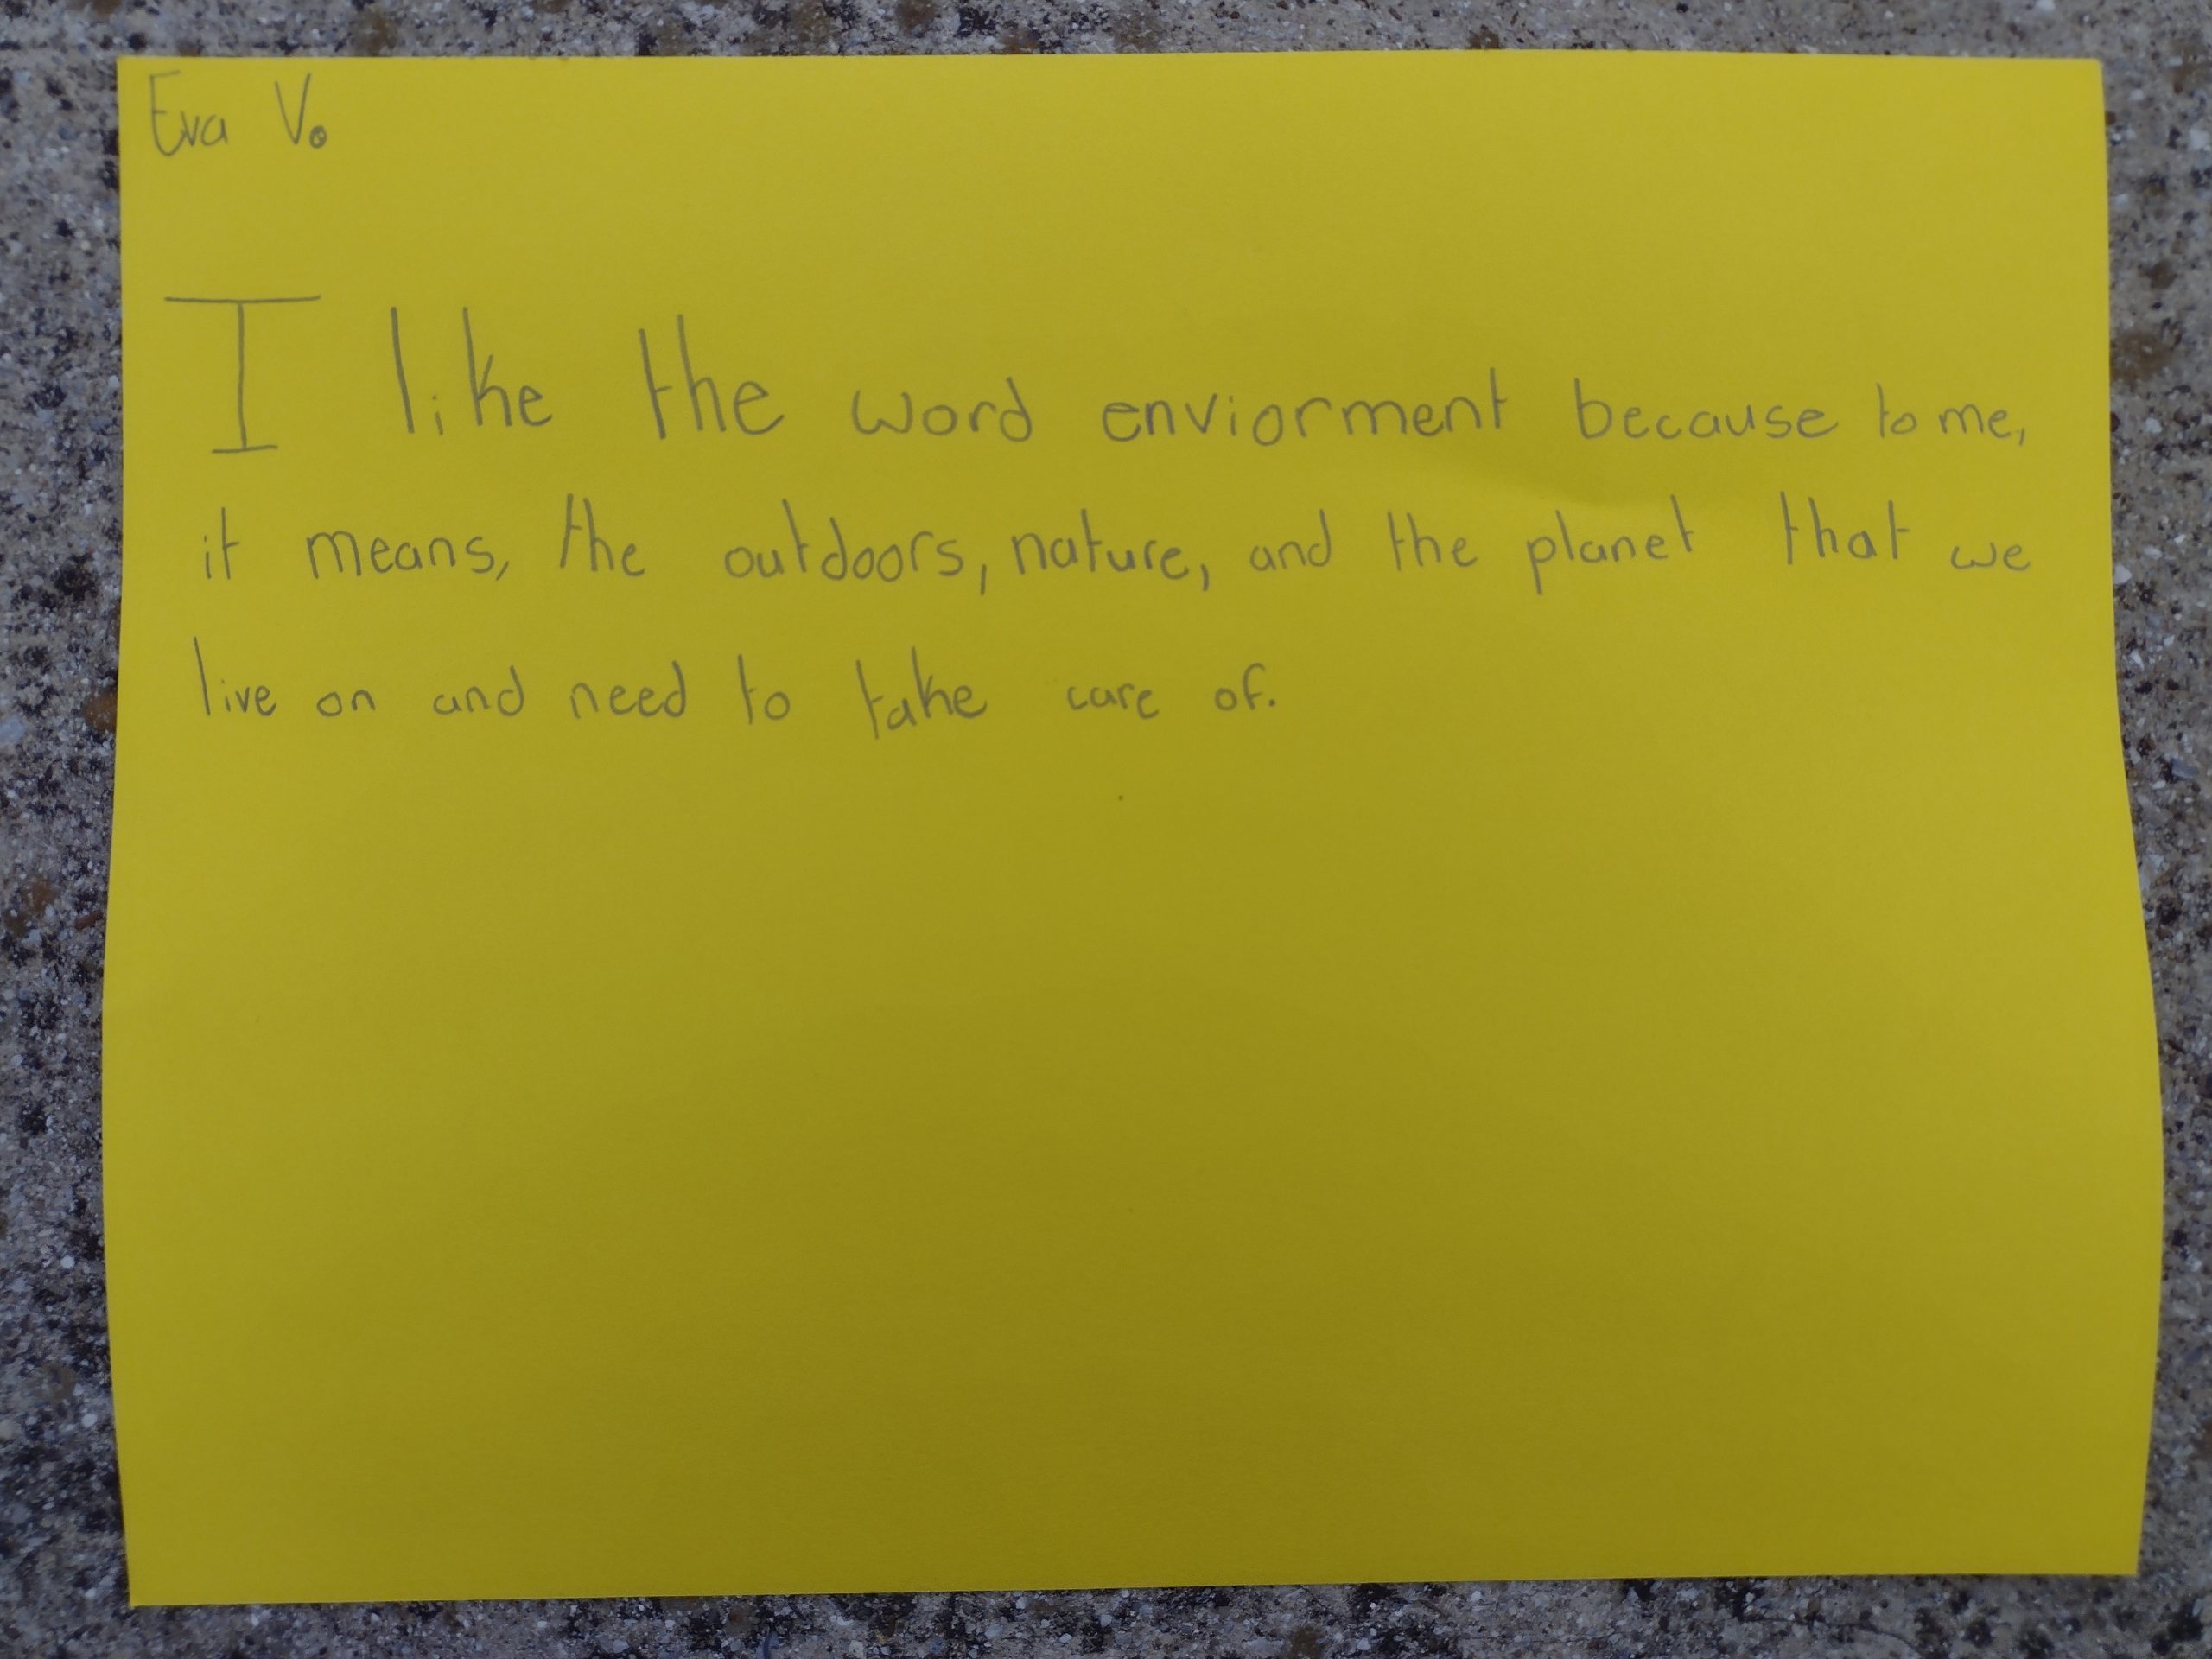 Eva V.
I like the word enviorment because to me,
it means, the outdoors, nature, and the planet that we
live on and need to take care of.